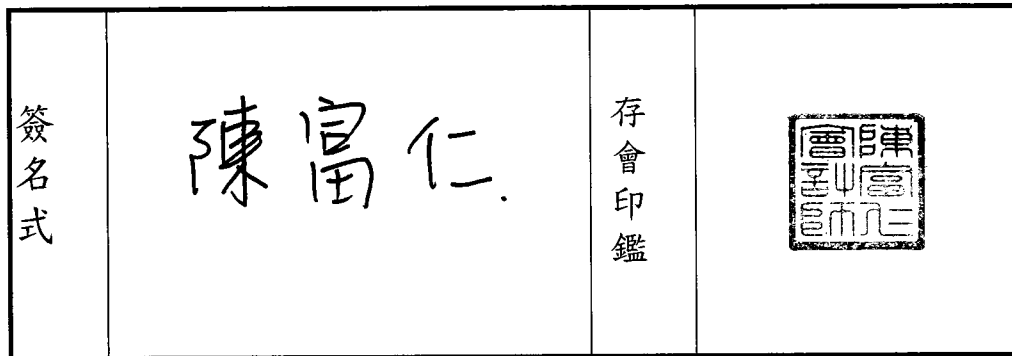 簽名式
陳富仁.
存會印鑑
陳富仁
會計師